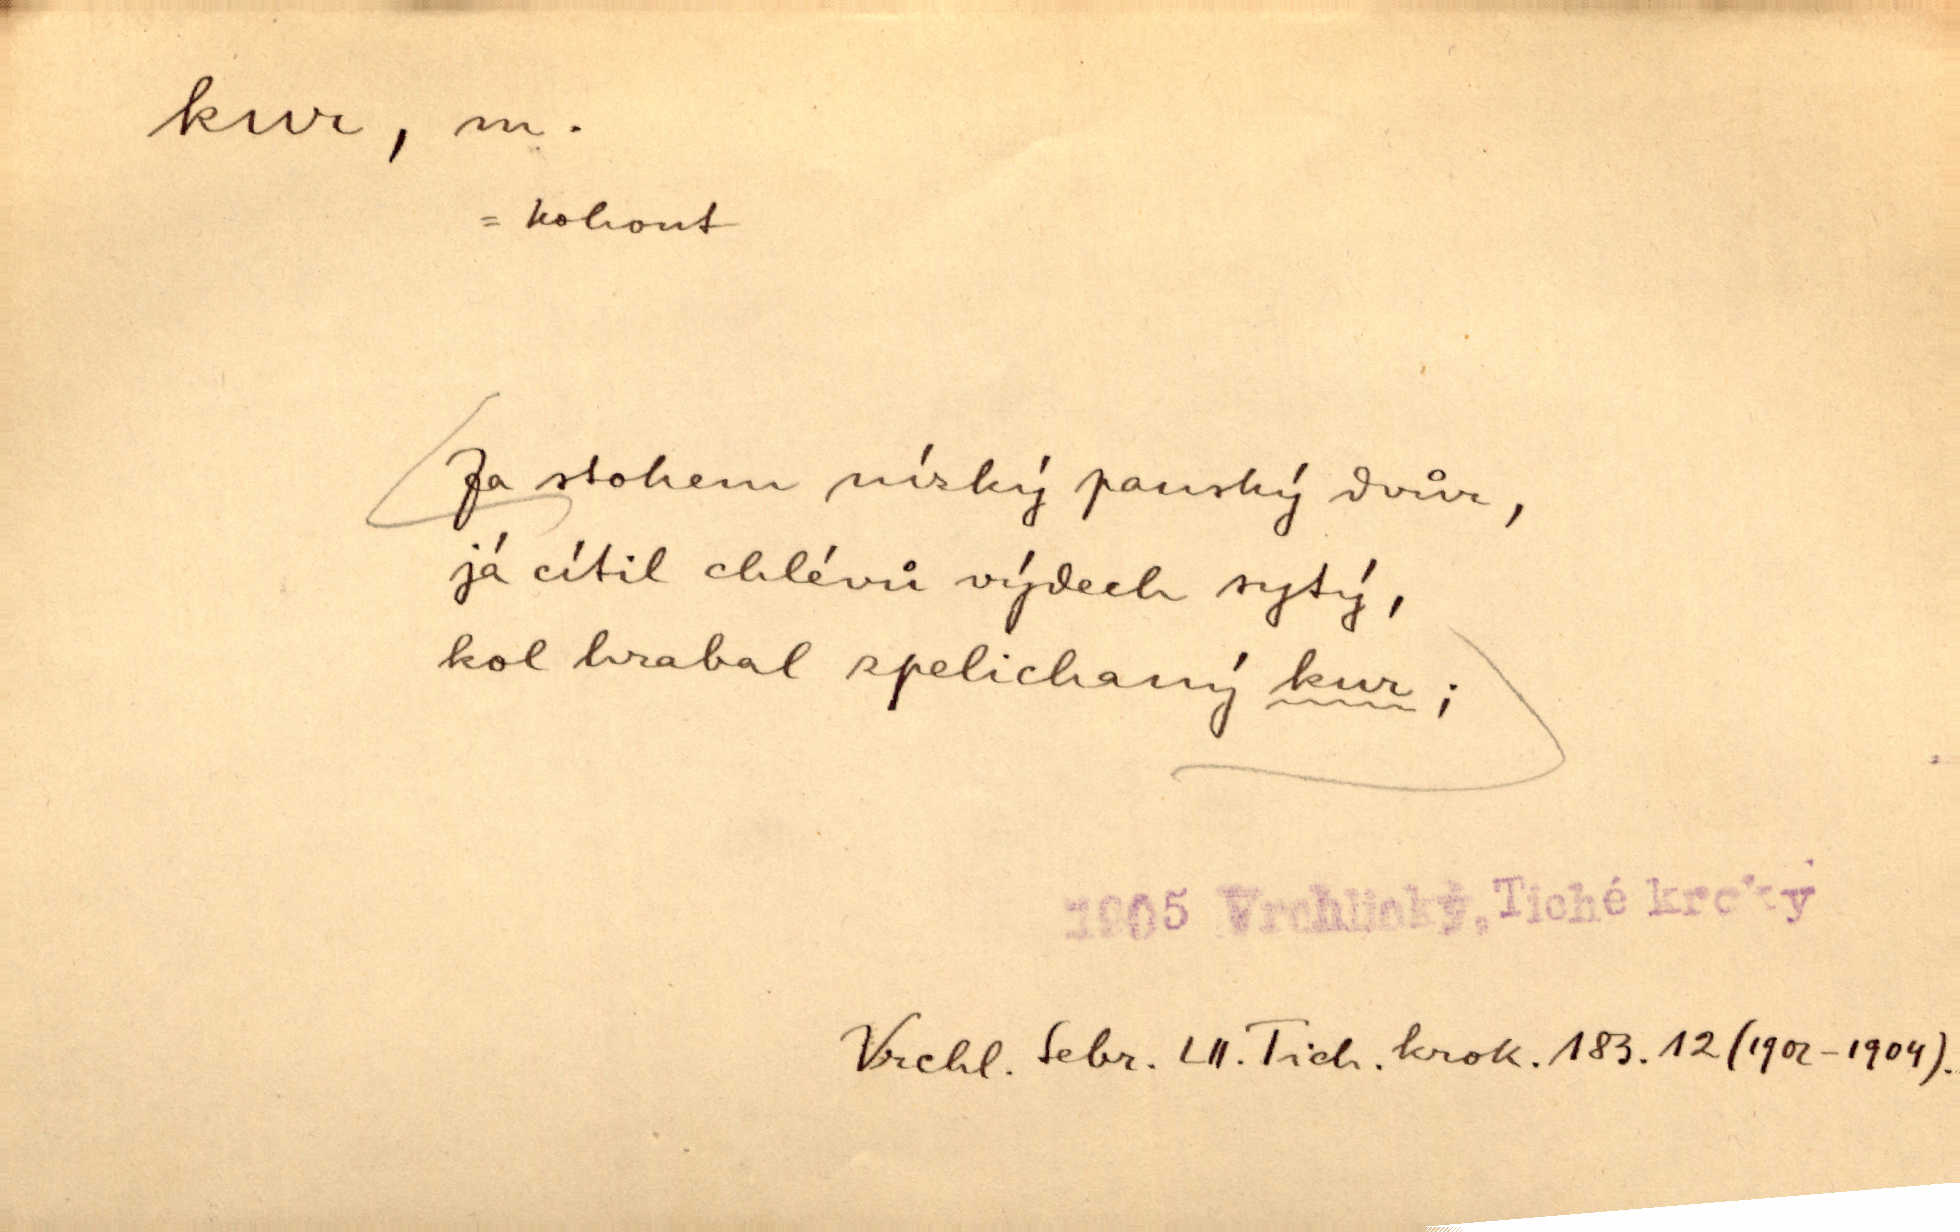 kur, m.
= kohout
Za stohem nízký panský dvůr,
já cítil chlévů výdech sytý,
kol hrabal zpelichaný kur;
1905 Vrchlický, Tiché kroky
Vrchl. Sebr. LII. Tich. krok. 183. 12 (1902–1904).